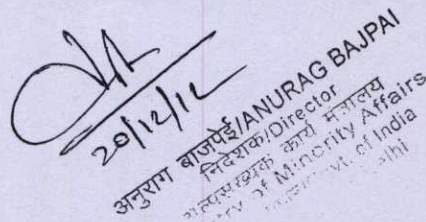 20/12/12
अनुराग बाजपेई/ANURAG BAJPAI
निदेशक/Director
अल्पसंख्यक कार्य मंत्रालय
of Minority Affairs
Govt. of India